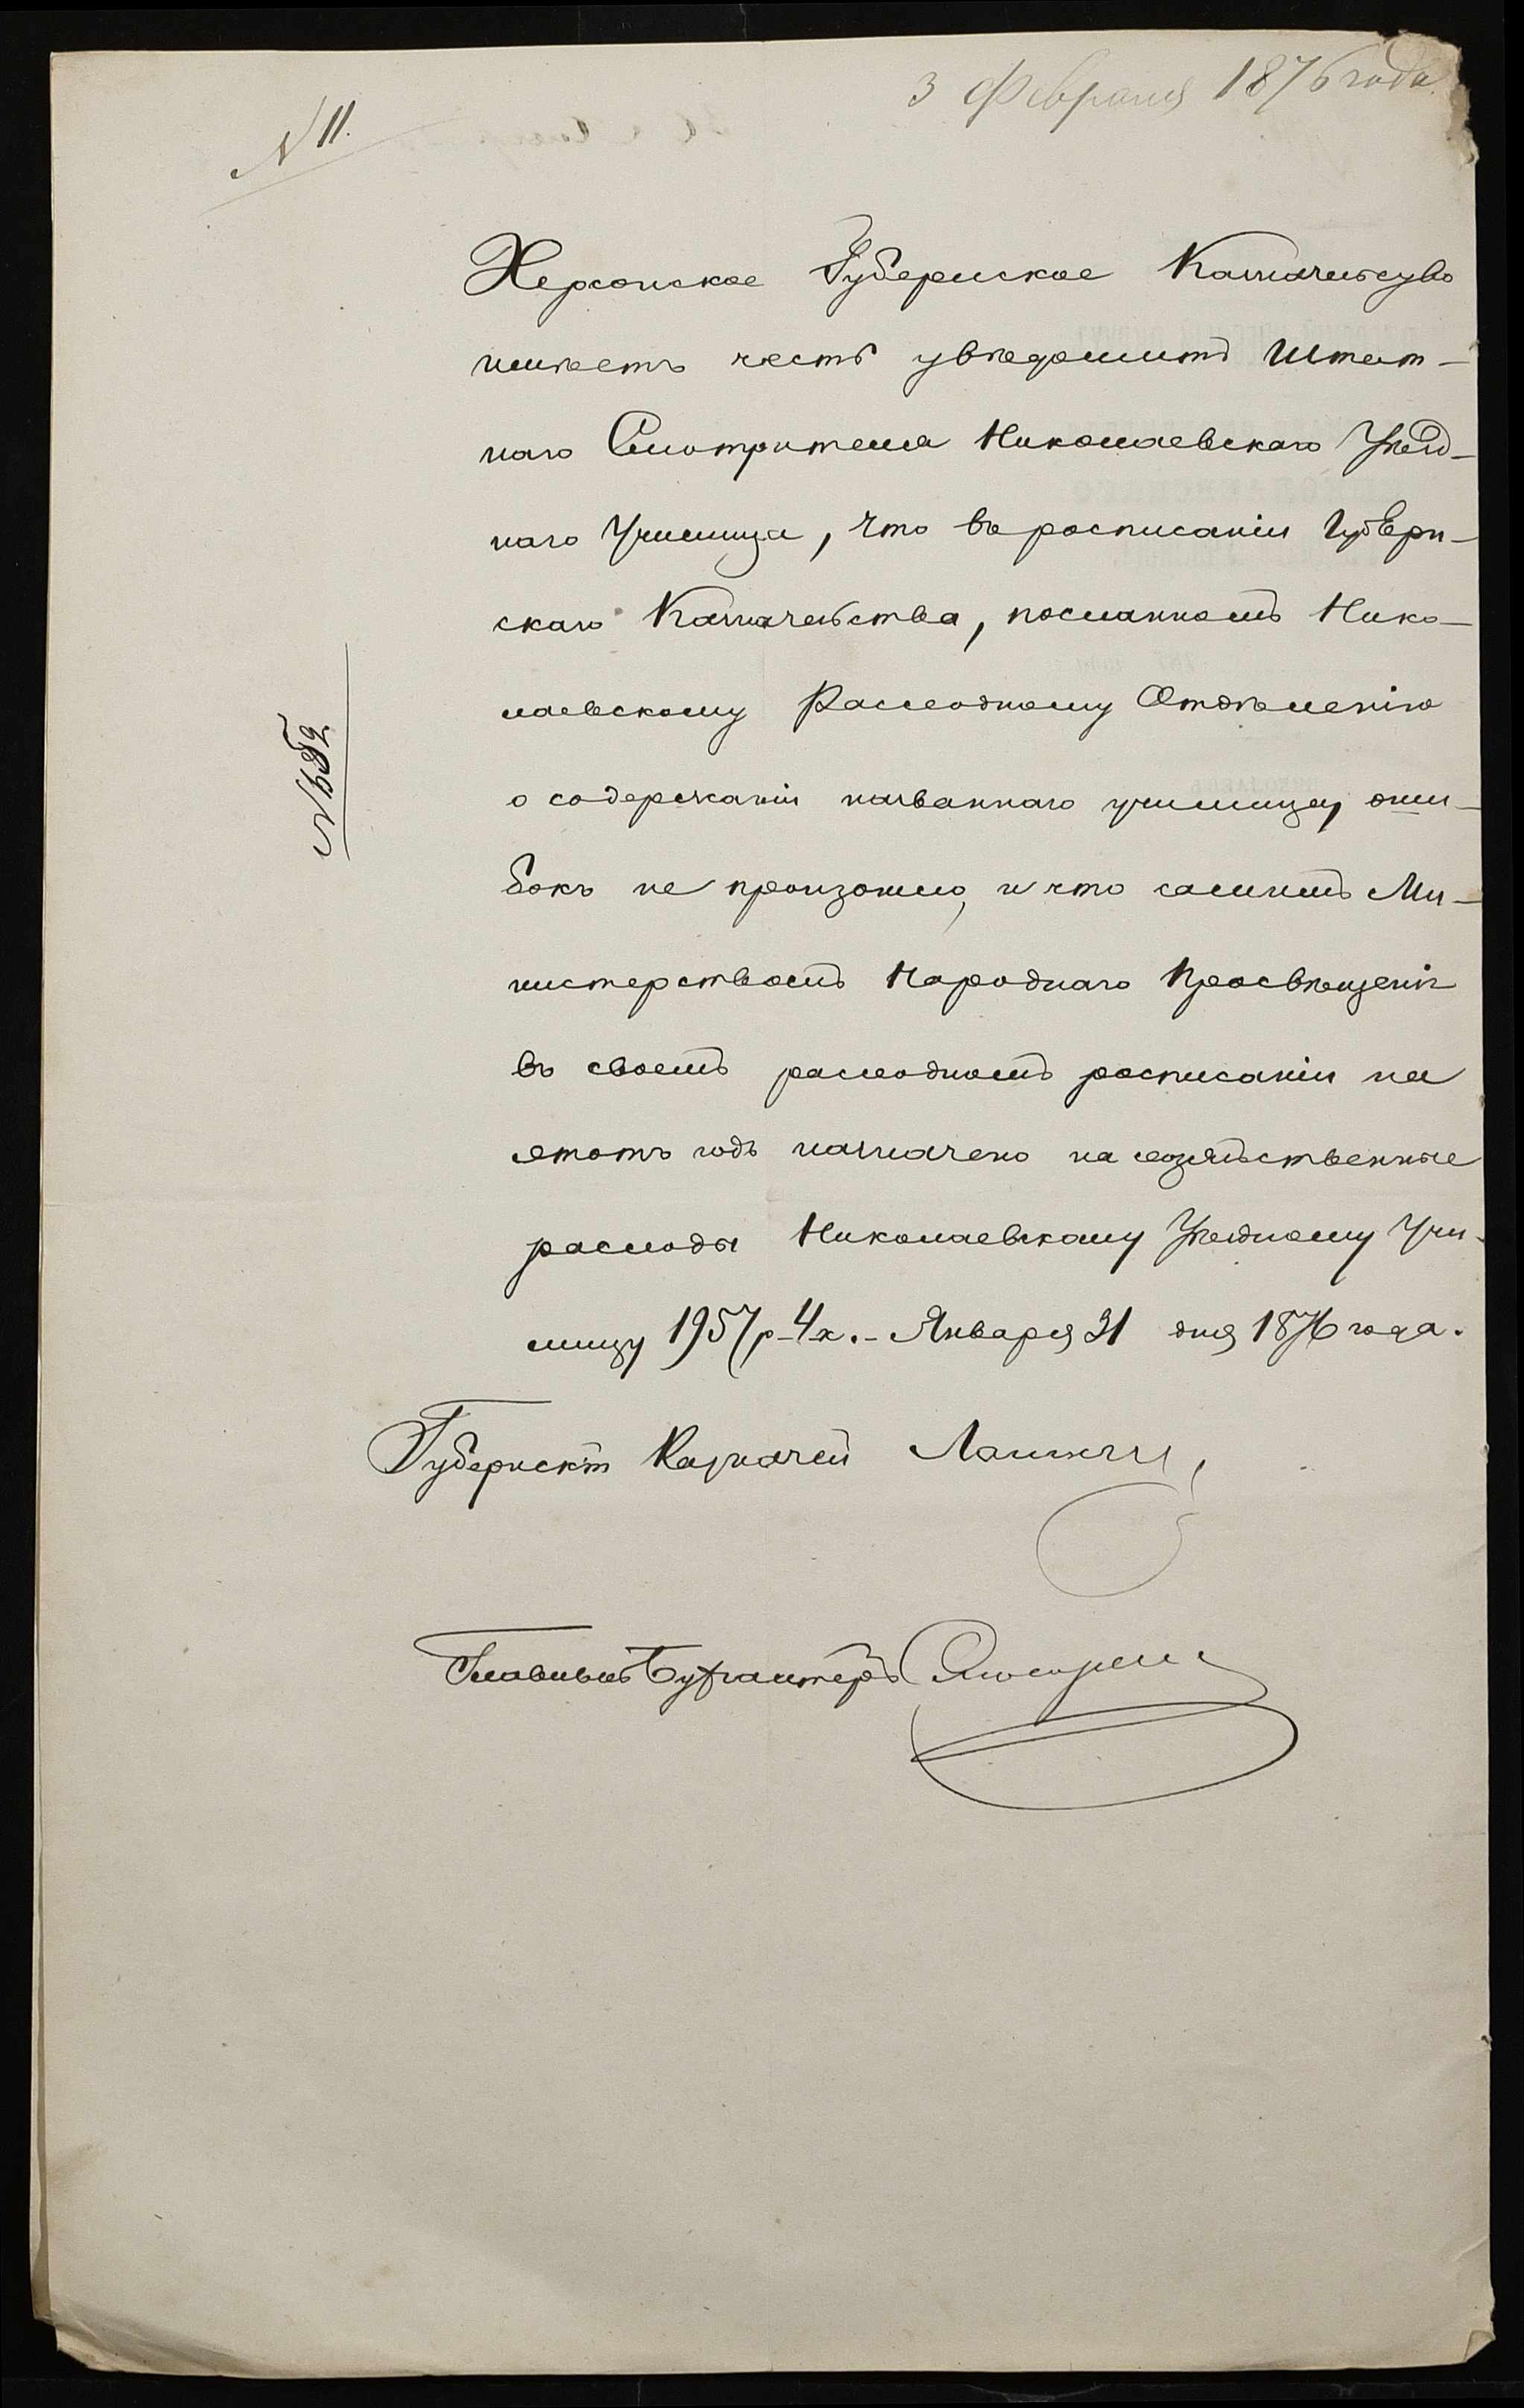 3 Февраля 1876 года.
N 11.
Херсонское Губернское Казначейство
имѣетъ честь увѣдомить Штат-
наго Смотрителя Николаевскаго Уѣзд-
наго Училища, что въ росписаніи Губерн-
скаго Казначейства, посланномъ Нико-
лаевскому Расходному Отдѣленію
о содержаніи названнаго училища, оши-
бокъ не произошло, и что самимъ Ми-
нистерствомъ Народнаго Просвѣщенія
въ своемъ расходномъ росписаніи на
этотъ годъ назначено на хозяйственные
расходы Николаевскому Уѣздному Учи-
лищу 1957 р. 4 к. - Января 31 дня 1876 года.
Губернскій Казначей
Главный Бухгалтеръ